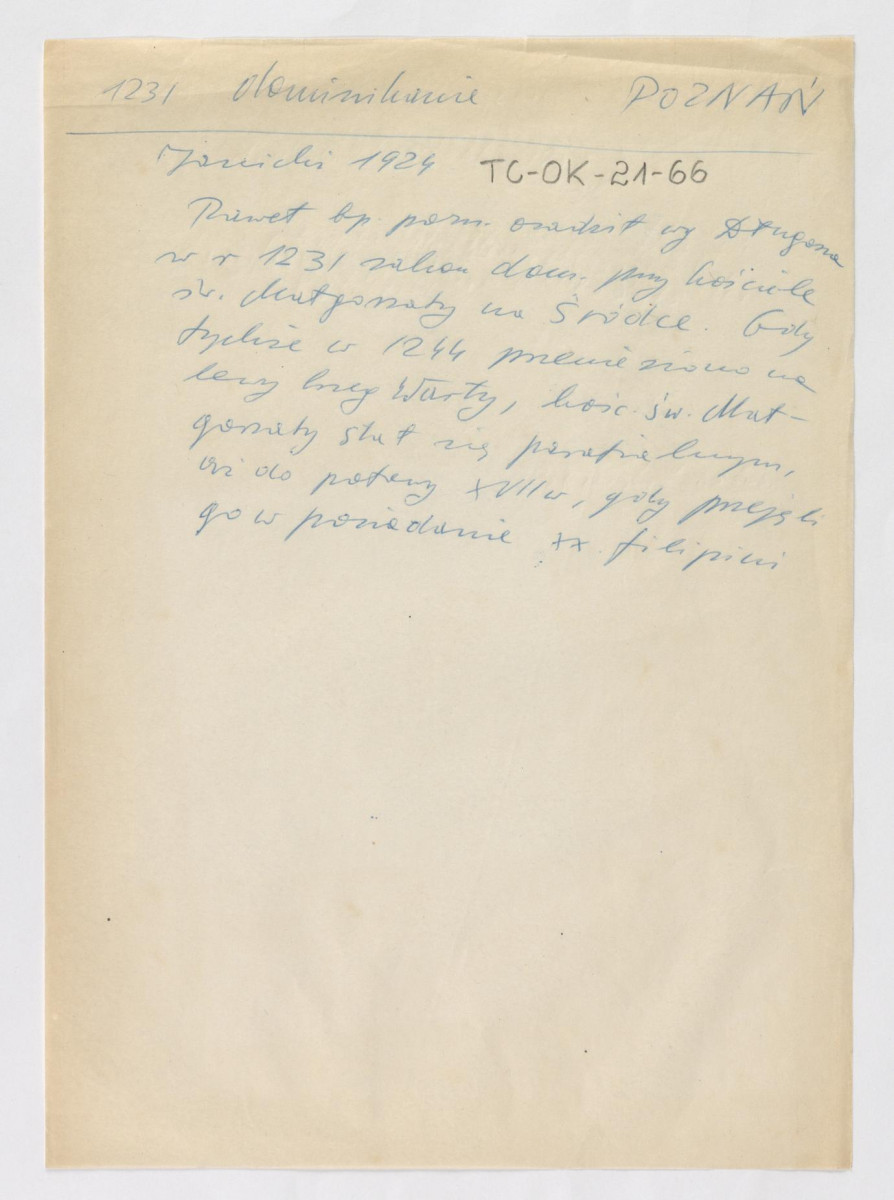 1231 dominikanie POZNAŃ
1924 TC-OK-21-66
Paweł bp. pozn. osadził wg Długosza
w r 1231 zakon dom. przy kościele
św. Małgorzaty na Śródce. Gdy
tychże w 1244 przeniesiono na
lewy brzeg Warty, kośc. św. Mał-
gorzaty stał się parafialnym,
aż do połowy XVII w, gdy przejęli
go w posiadanie xx. filipini